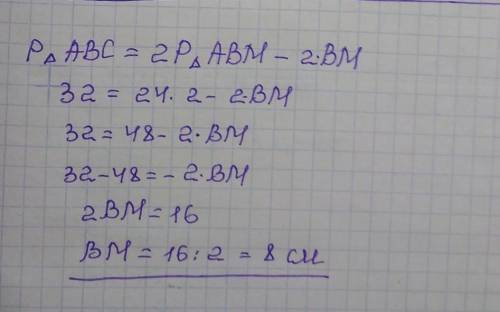 P△ ABC = 2P△ ABM - 2·BM
32 = 24·2 - 2·BM
32 = 48 - 2·BM
32-48 = - 2·BM
2BM = 16
BM = 16:2 = 8 см